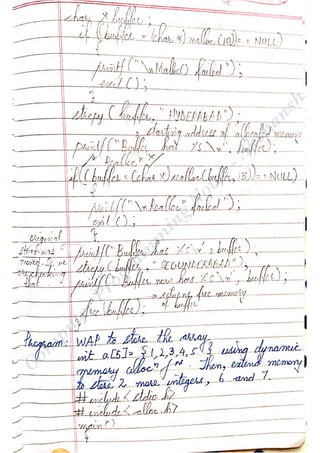 char * buffer ;
if ( (buffer = (char *) malloc (10)) == NULL)
{
printf(" \n Malloc() failed");
exit();
}
strcpy ( buffer, "HYDERABAD");
→ starting address of allocated memory
printf("Buffer has %s \n", buffer);
/* Realloc */
if( (buffer = (char *) realloc (buffer, 15)) == NULL)
{
printf("\n Realloc failed");
exit();
}
original
string was
that
printf(" Buffer has %s \n", buffer);
strcpy (buffer, "SECUNDERABAD");
printf(" Buffer now has %s \n", buffer);
free (buffer); → returns free memory
of buffer
Program: WAP to store the array
int a[5]= {1,2,3,4,5} using dynamic
memory allocⁿ fⁿ. Then, extend memory
to store 2 more integers, 6 and 7.
# include < stdio.h>
# include < alloc.h>
main()
{